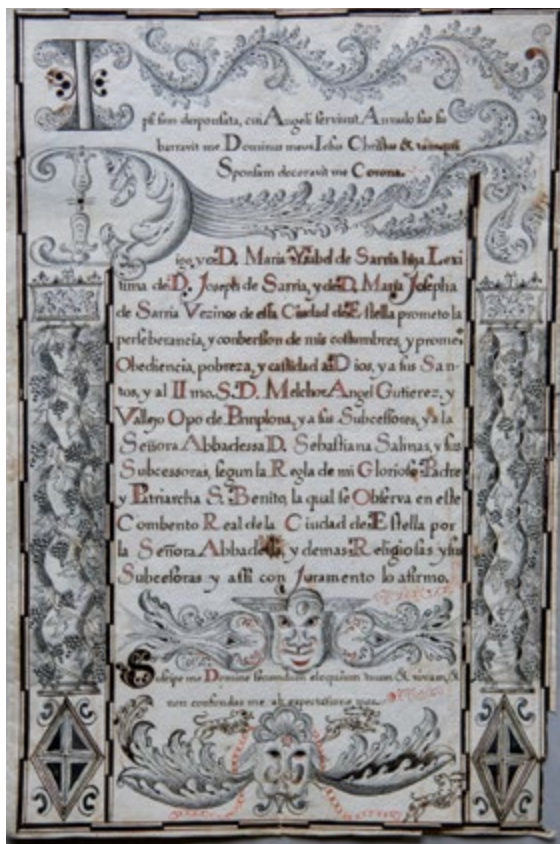 Ipsi sum desponsata, cui Angeli serviunt Annulo suo su
barravit me Dominus meus Iesus Christus & tamquam
Sponsam decoravit me Corona.
Digo yo D. Maria Ysabel de Sarria hija Lexi
tima de D. Joseph de Sarria, y de D. Maria Josepha
de Sarria Vezinos de esta Ciudad de Estella prometo la
perseberancia, y conbersion de mis costumbres, y prome
Obediencia, pobreza, y castidad a Dios, y a sus San-
tos, y al Il mo. S. D. Melchor Angel Gutierez, y
Vallejo Opo de Pamplona, y a sus Subcessores, y a la
Señora Abbadessa D. Sebastiana Salinas, y sus
Subcessoras, segun la Regla de mi Glorioso Padre
y Patriarcha S. Benito, la qual se Observa en este
Combento Real de la Ciudad de Estella por
la Señora Abbadessa, y demas Religiosas y sus
Subcesoras y assi con Juramento lo afirmo.
Suscipe me Domine secundum eloquium tuum & vivam, &
non confundas me ab expectatione mea.